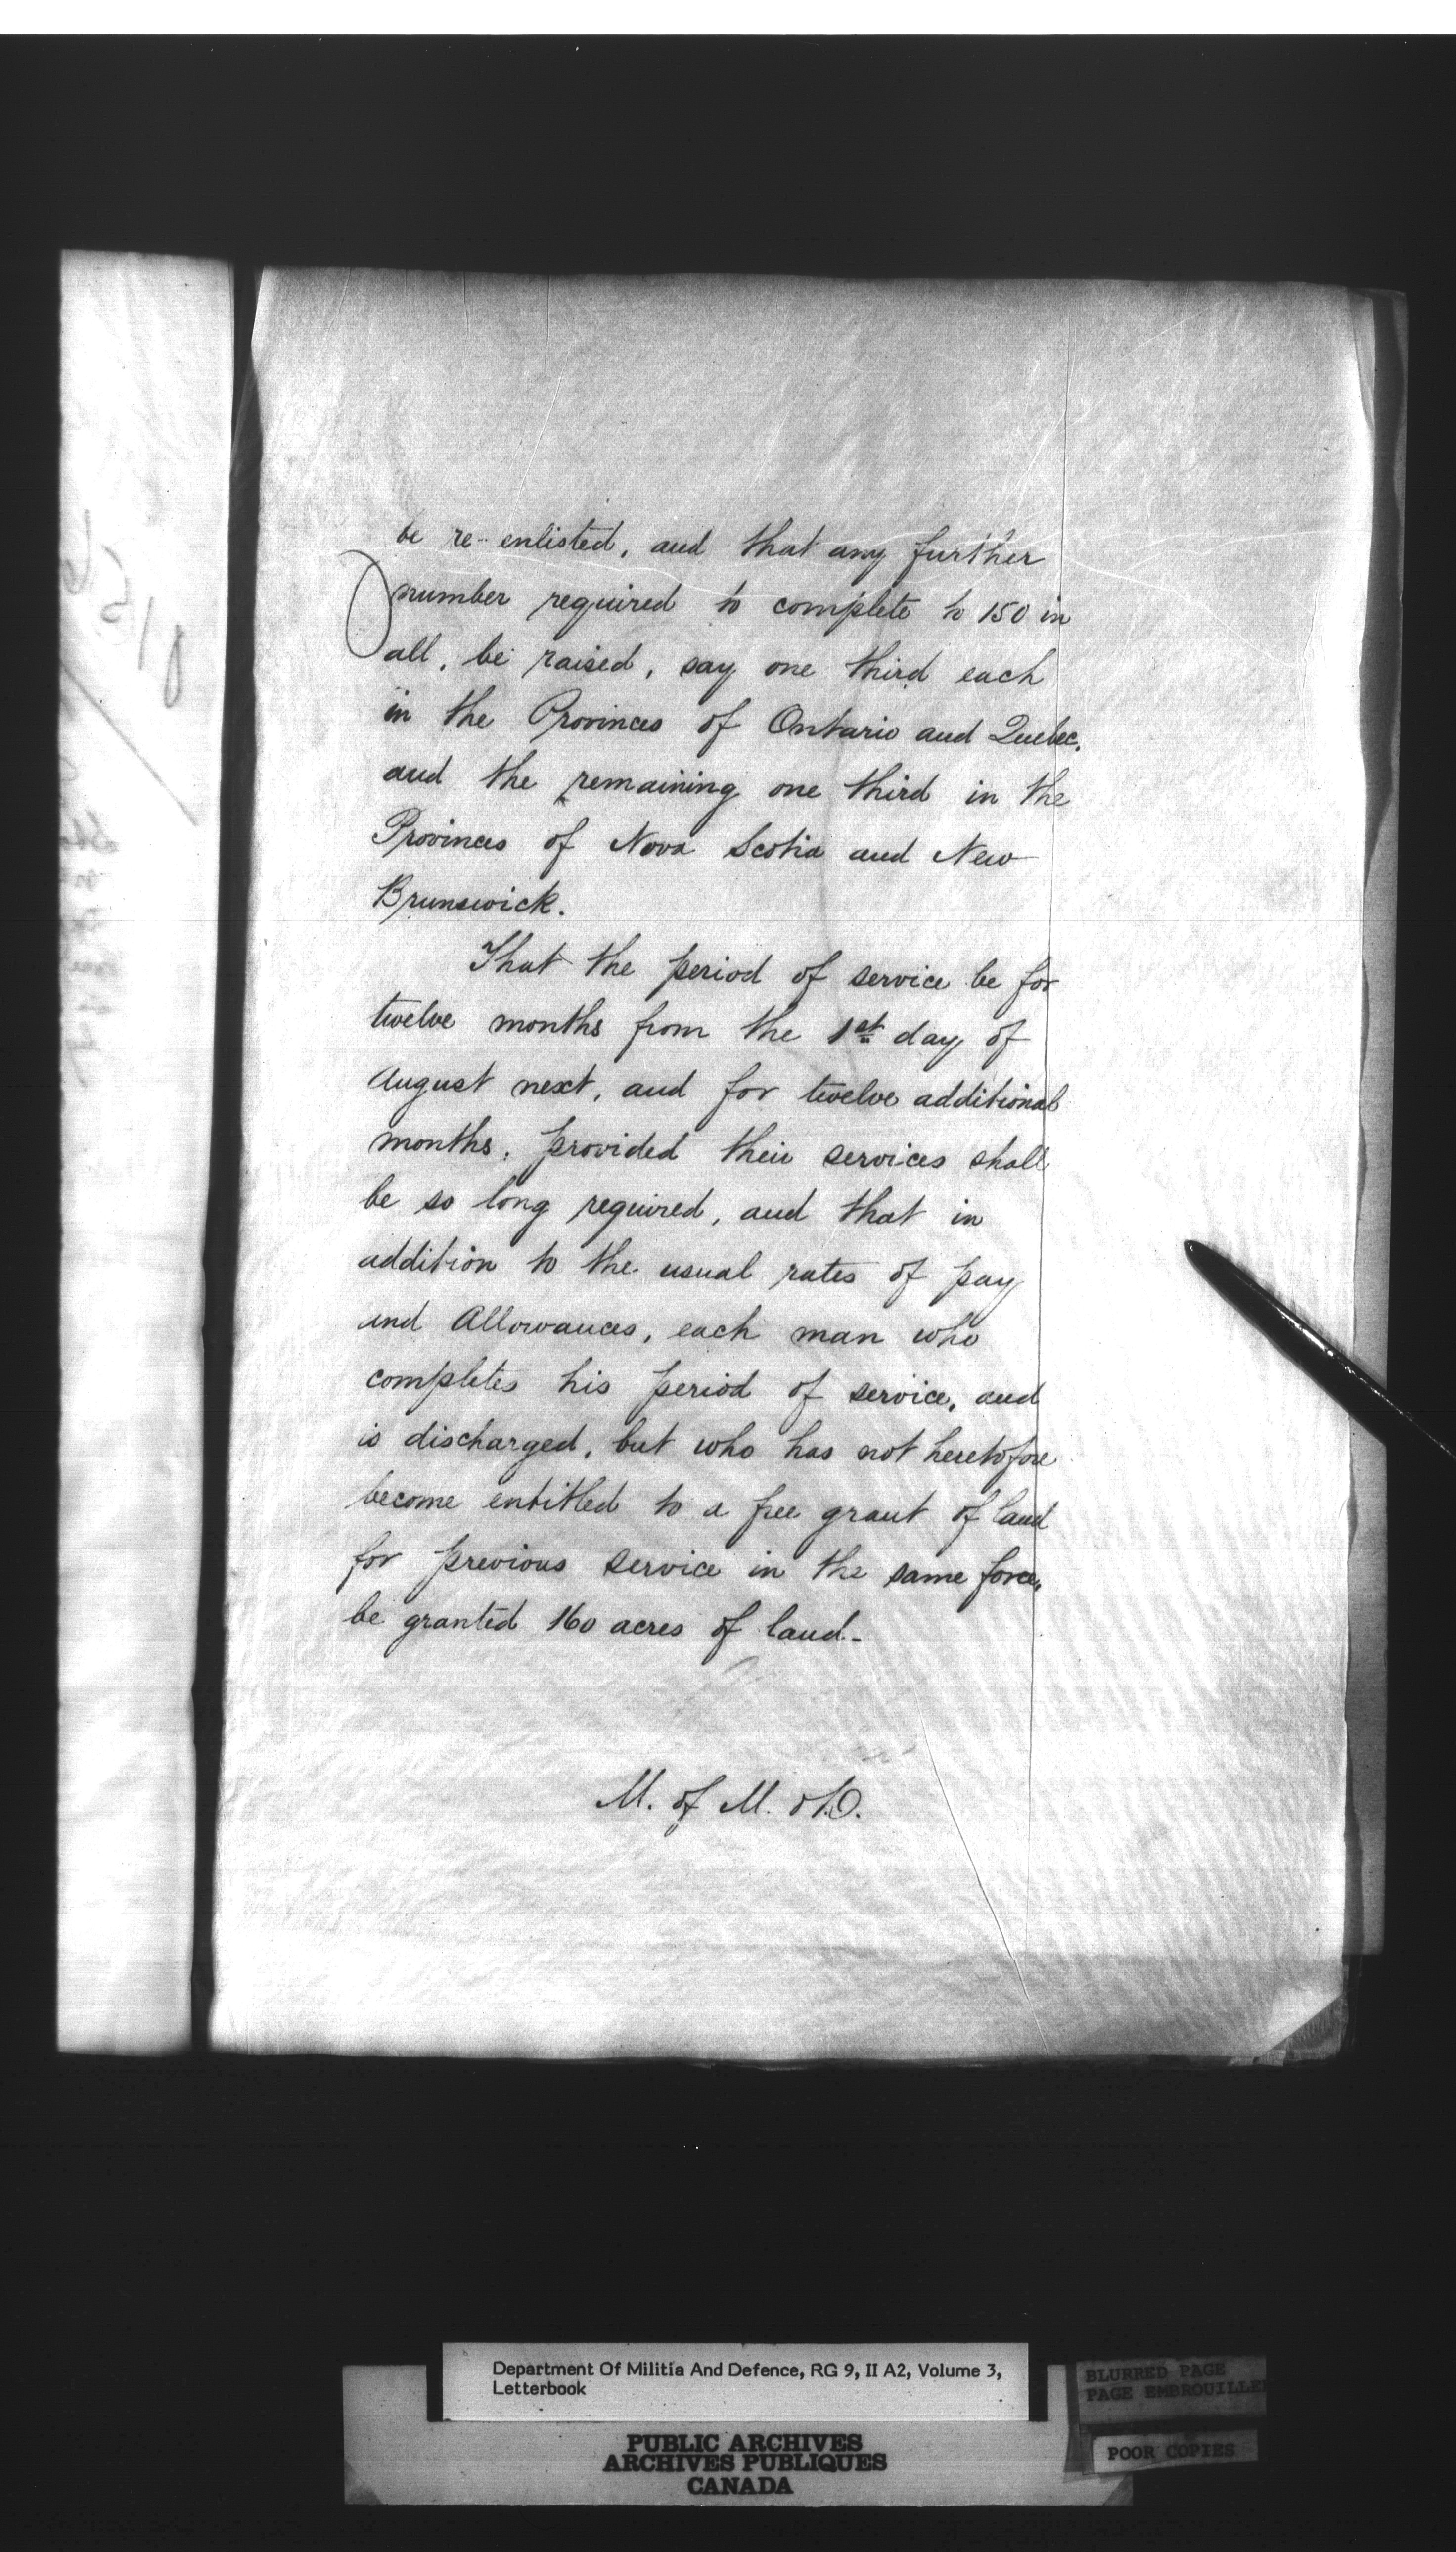 be re-enlisted, and that any further
number required to complete to 150 in
all, be raised, say one third each
in the Provinces of Ontario and Quebec,
and the remaining one third in the
Provinces of Nova Scotia and New
Brunswick.
That the period of service be for
twelve months from the 1st day of
August next, and for twelve additional
months, provided their services shall
be so long required, and that in
addition to the usual rates of pay
and Allowances, each man who
completes his period of service, and
is discharged, but who has not heretofore
become entitled to a free grant of land
for previous service in the same force,
be granted 160 acres of land-
M. of M. & D.
Department Of Militia And Defence, RG 9, II A2, Volume 3,
Letterbook
BLURRED PAGE
PAGE EMBROUILLE
POOR COPIES
PUBLIC ARCHIVES
ARCHIVES PUBLIQUES
CANADA